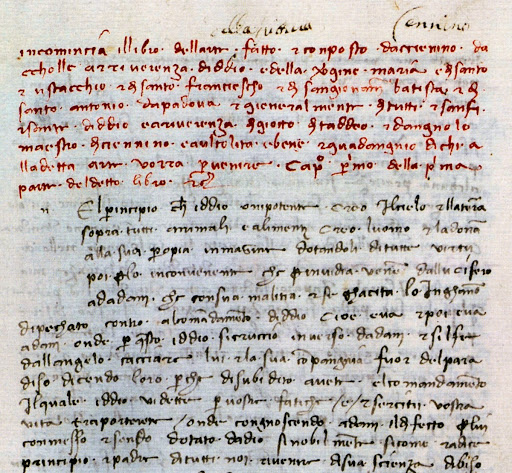 della pittura Cennino
incomincia illibro dellarte fatto & composto dacienino da
cholle a rriverenza diddio e della v̄gine maria & di santo
& ustacchio & di santo francescho & di san giovanni batista & di
santo antonio da padova & gieneralmente di tutti & santi
& sante addio & a riverenza di giotto di taddeo & dangnolo
maestro di ciennino e a utolita e bene & guadangnio di chi a
lla detta arte vorra p̄venire Capº p̄mo della p̄ma
parte del detto libro &c
El principio ch̄ iddio onipotente creo Ilcielo & llaterra
sopra tutte animali e alimenti creo luomo & ladonna
alla sua p̄opia inmagine dotandoli di tutte virtu
poi p̄ lo inconveniente che p̄ invidia venne dallucifero
adadam che consua malizia & se ghacita lo inghanno
dipechato contro alcomādamēto diddio Cioe eva & poi eva
adam onde p̄ q̄sto iddio sicruccio inverso dadam & sil fe
dallangelo cacciare lui & la sua cōpangnia fuor del para
diso dicendo loro p̄che disubidito avete elcomandamēto
Ilquale iddio vi dette p̄ vostre fatiche e & sercitii vostra
vita traporterete onde congnoscendo adam ildefecto p̄ lui
commesso & sendo dotato dadio si nobilmēte sicome radice
principio & padre di tutti noi rivenne di sua scienza dibiso